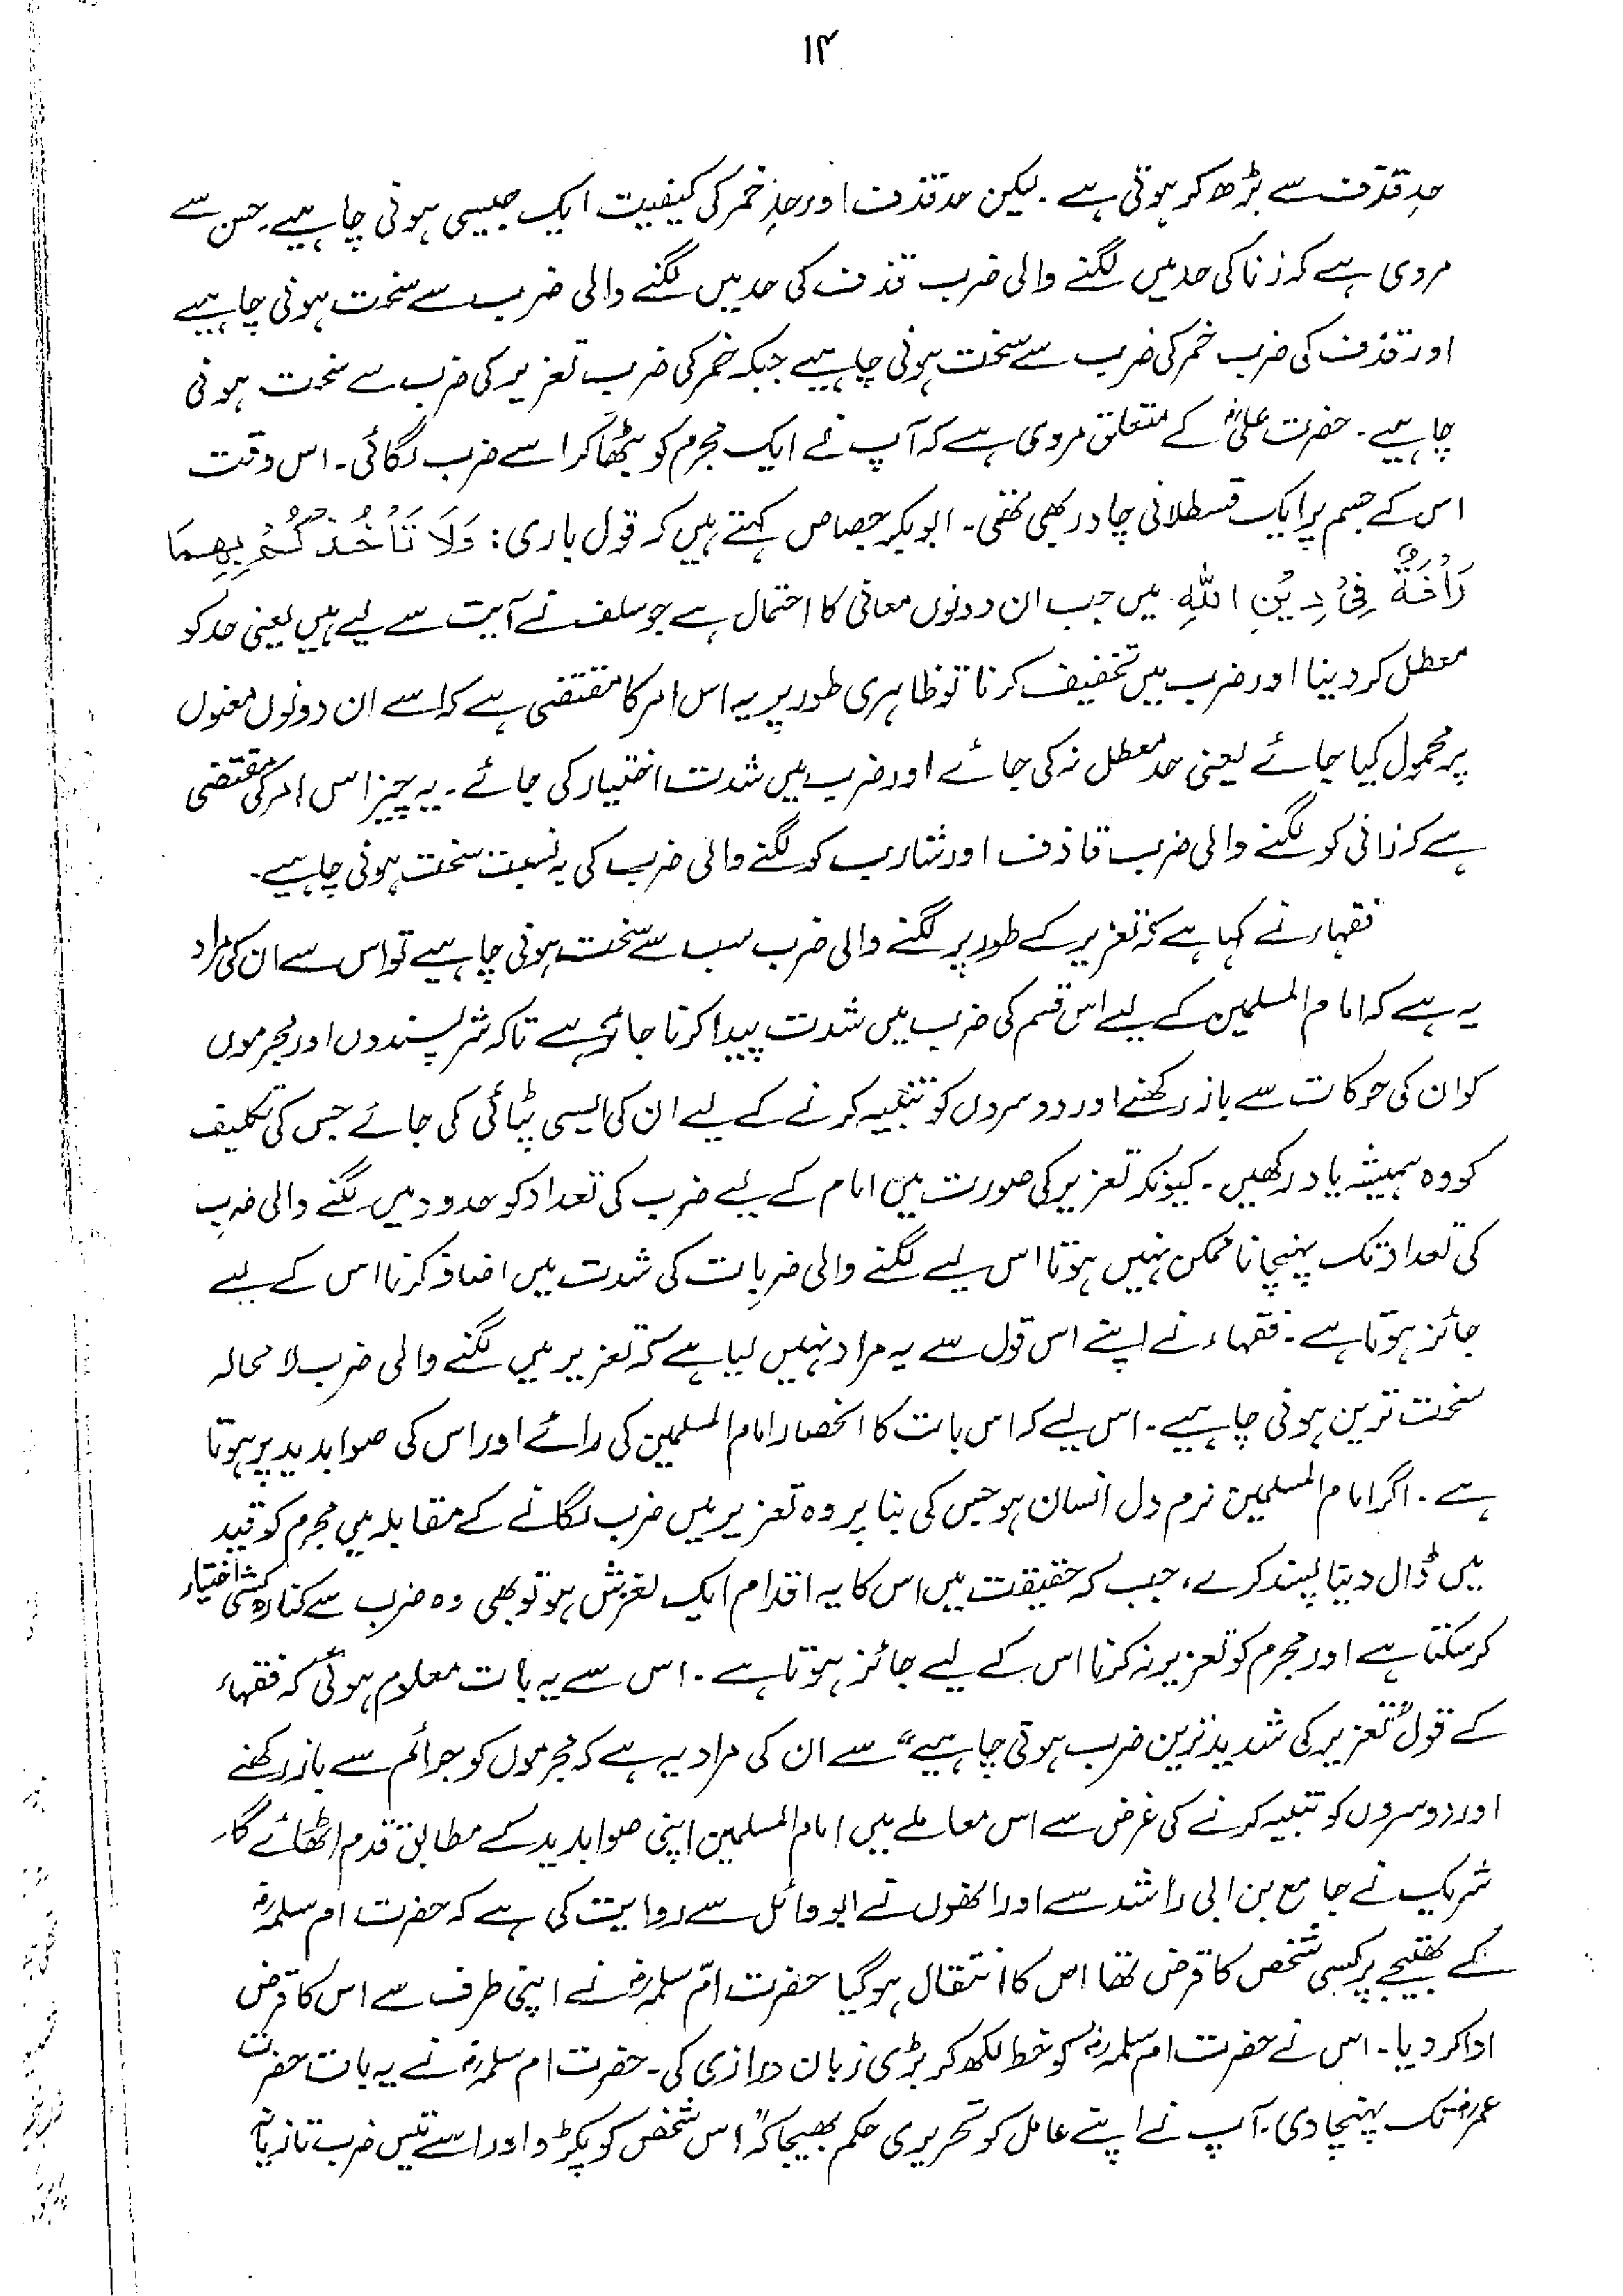 ۱۴
حدِ قذف سے بڑھ کر ہوتی ہے۔ لیکن حد قذف اور حدِ خمر کی کیفیت ایک جیسی ہونی چاہیے۔ حسن سے
مروی ہے کہ زنا کی حد میں لگنے والی ضرب قذف کی حد میں لگنے والی ضرب سے سخت ہونی چاہیے
اور قذف کی ضرب خمر کی ضرب سے سخت ہونی چاہیے جبکہ خمر کی ضرب تعزیر کی ضرب سے سخت ہونی
چاہیے۔ حضرت علیؓ کے متعلق مروی ہے کہ آپ نے ایک مجرم کو بٹھا کر اسے ضرب لگائی۔ اس وقت
اس کے جسم پر ایک قسطلانی چادر بھی تھی۔ ابوبکر جصاص کہتے ہیں کہ قول باری: وَلَا تَأْخُذْكُمْ بِهِمَا
رَأْفَةٌ فِيْ دِيْنِ اللّٰهِ میں جب ان دونوں معانی کا احتمال ہے جو سلف نے آیت سے لیے ہیں یعنی حد کو
معطل کر دینا اور ضرب میں تخفیف کرنا تو ظاہری طور پر یہ اس امر کا مقتضی ہے کہ اسے ان دونوں معنوں
پر محمول کیا جائے یعنی حد معطل نہ کی جائے اور ضرب میں شدت اختیار کی جائے۔ یہ چیز اس امر کی مقتضی
ہے کہ زانی کو لگنے والی ضرب قاذف اور شارب کو لگنے والی ضرب کی بہ نسبت سخت ہونی چاہیے۔
فقہاء نے کہا ہے کہ تعزیر کے طور پر لگنے والی ضرب سب سے سخت ہونی چاہیے تو اس سے ان کی مراد
یہ ہے کہ امام المسلمین کے لیے اس قسم کی ضرب میں شدت پیدا کرنا جائز ہے تاکہ شرپسندوں اور مجرموں
کو ان کی حرکات سے باز رکھنے اور دوسروں کو تنبیہ کرنے کے لیے ان کی ایسی پٹائی کی جائے جس کی تکلیف
کو وہ ہمیشہ یاد رکھیں۔ کیونکہ تعزیر کی صورت میں امام کے لیے ضرب کی تعداد کو حدود میں لگنے والی ضرب
کی تعداد تک پہنچانا ممکن نہیں ہوتا اس لیے لگنے والی ضربات کی شدت میں اضافہ کرنا اس کے لیے
جائز ہوتا ہے۔ فقہاء نے اپنے اس قول سے یہ مراد نہیں لیا ہے کہ تعزیر میں لگنے والی ضرب لا محالہ
سخت ترین ہونی چاہیے۔ اس لیے کہ اس بات کا انحصار امام المسلمین کی رائے اور اس کی صوابدید پر ہوتا
ہے۔ اگر امام المسلمین نرم دل انسان ہو جس کی بنا پر وہ تعزیر میں ضرب لگانے کے مقابلہ میں مجرم کو قید
میں ڈال دینا پسند کرے، جب کہ حقیقت میں اس کا یہ اقدام ایک لغزش ہو تو بھی وہ ضرب سے کنارہ کشی اختیار
کر سکتا ہے اور مجرم کو تعزیر نہ کرنا اس کے لیے جائز ہوتا ہے۔ اس سے یہ بات معلوم ہوئی کہ فقہاء
کے قول "تعزیر کی شدید ترین ضرب ہوتی چاہیے" سے ان کی مراد یہ ہے کہ مجرموں کو جرائم سے باز رکھنے
اور دوسروں کو تنبیہ کرنے کی غرض سے اس معاملے میں امام المسلمین اپنی صوابدید کے مطابق قدم اٹھائے گا۔
شریک نے جامع بن ابی راشد سے اور انھوں نے ابو وائل سے روایت کی ہے کہ حضرت ام سلمہؓ
کے بھتیجے پر کسی شخص کا قرض تھا اس کا انتقال ہو گیا حضرت امّ سلمہؓ نے اپنی طرف سے اس کا قرض
ادا کر دیا۔ اس نے حضرت ام سلمہؓ کو خط لکھ کر بڑی زبان درازی کی۔ حضرت ام سلمہؓ نے یہ بات حضرت
عمرؓ تک پہنچا دی۔ آپ نے اپنے عامل کو تحریری حکم بھیجا کہ "اس شخص کو پکڑو اور اسے تیس ضرب تازیانے